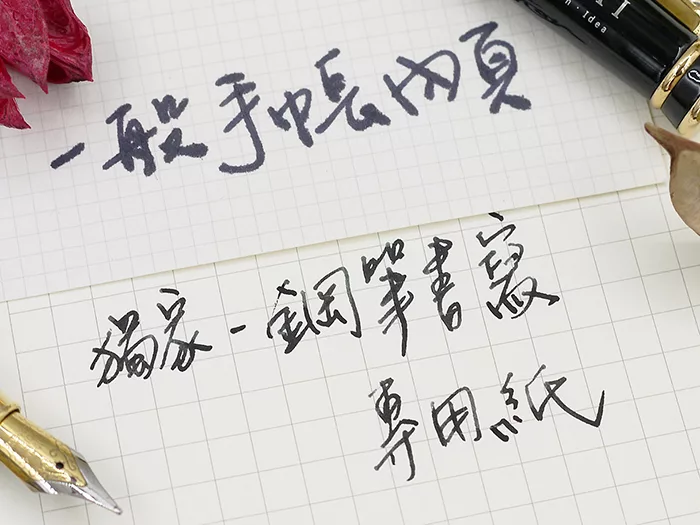 一般手帳內頁
獨家-鋼筆書寫
專用紙
n·Idea